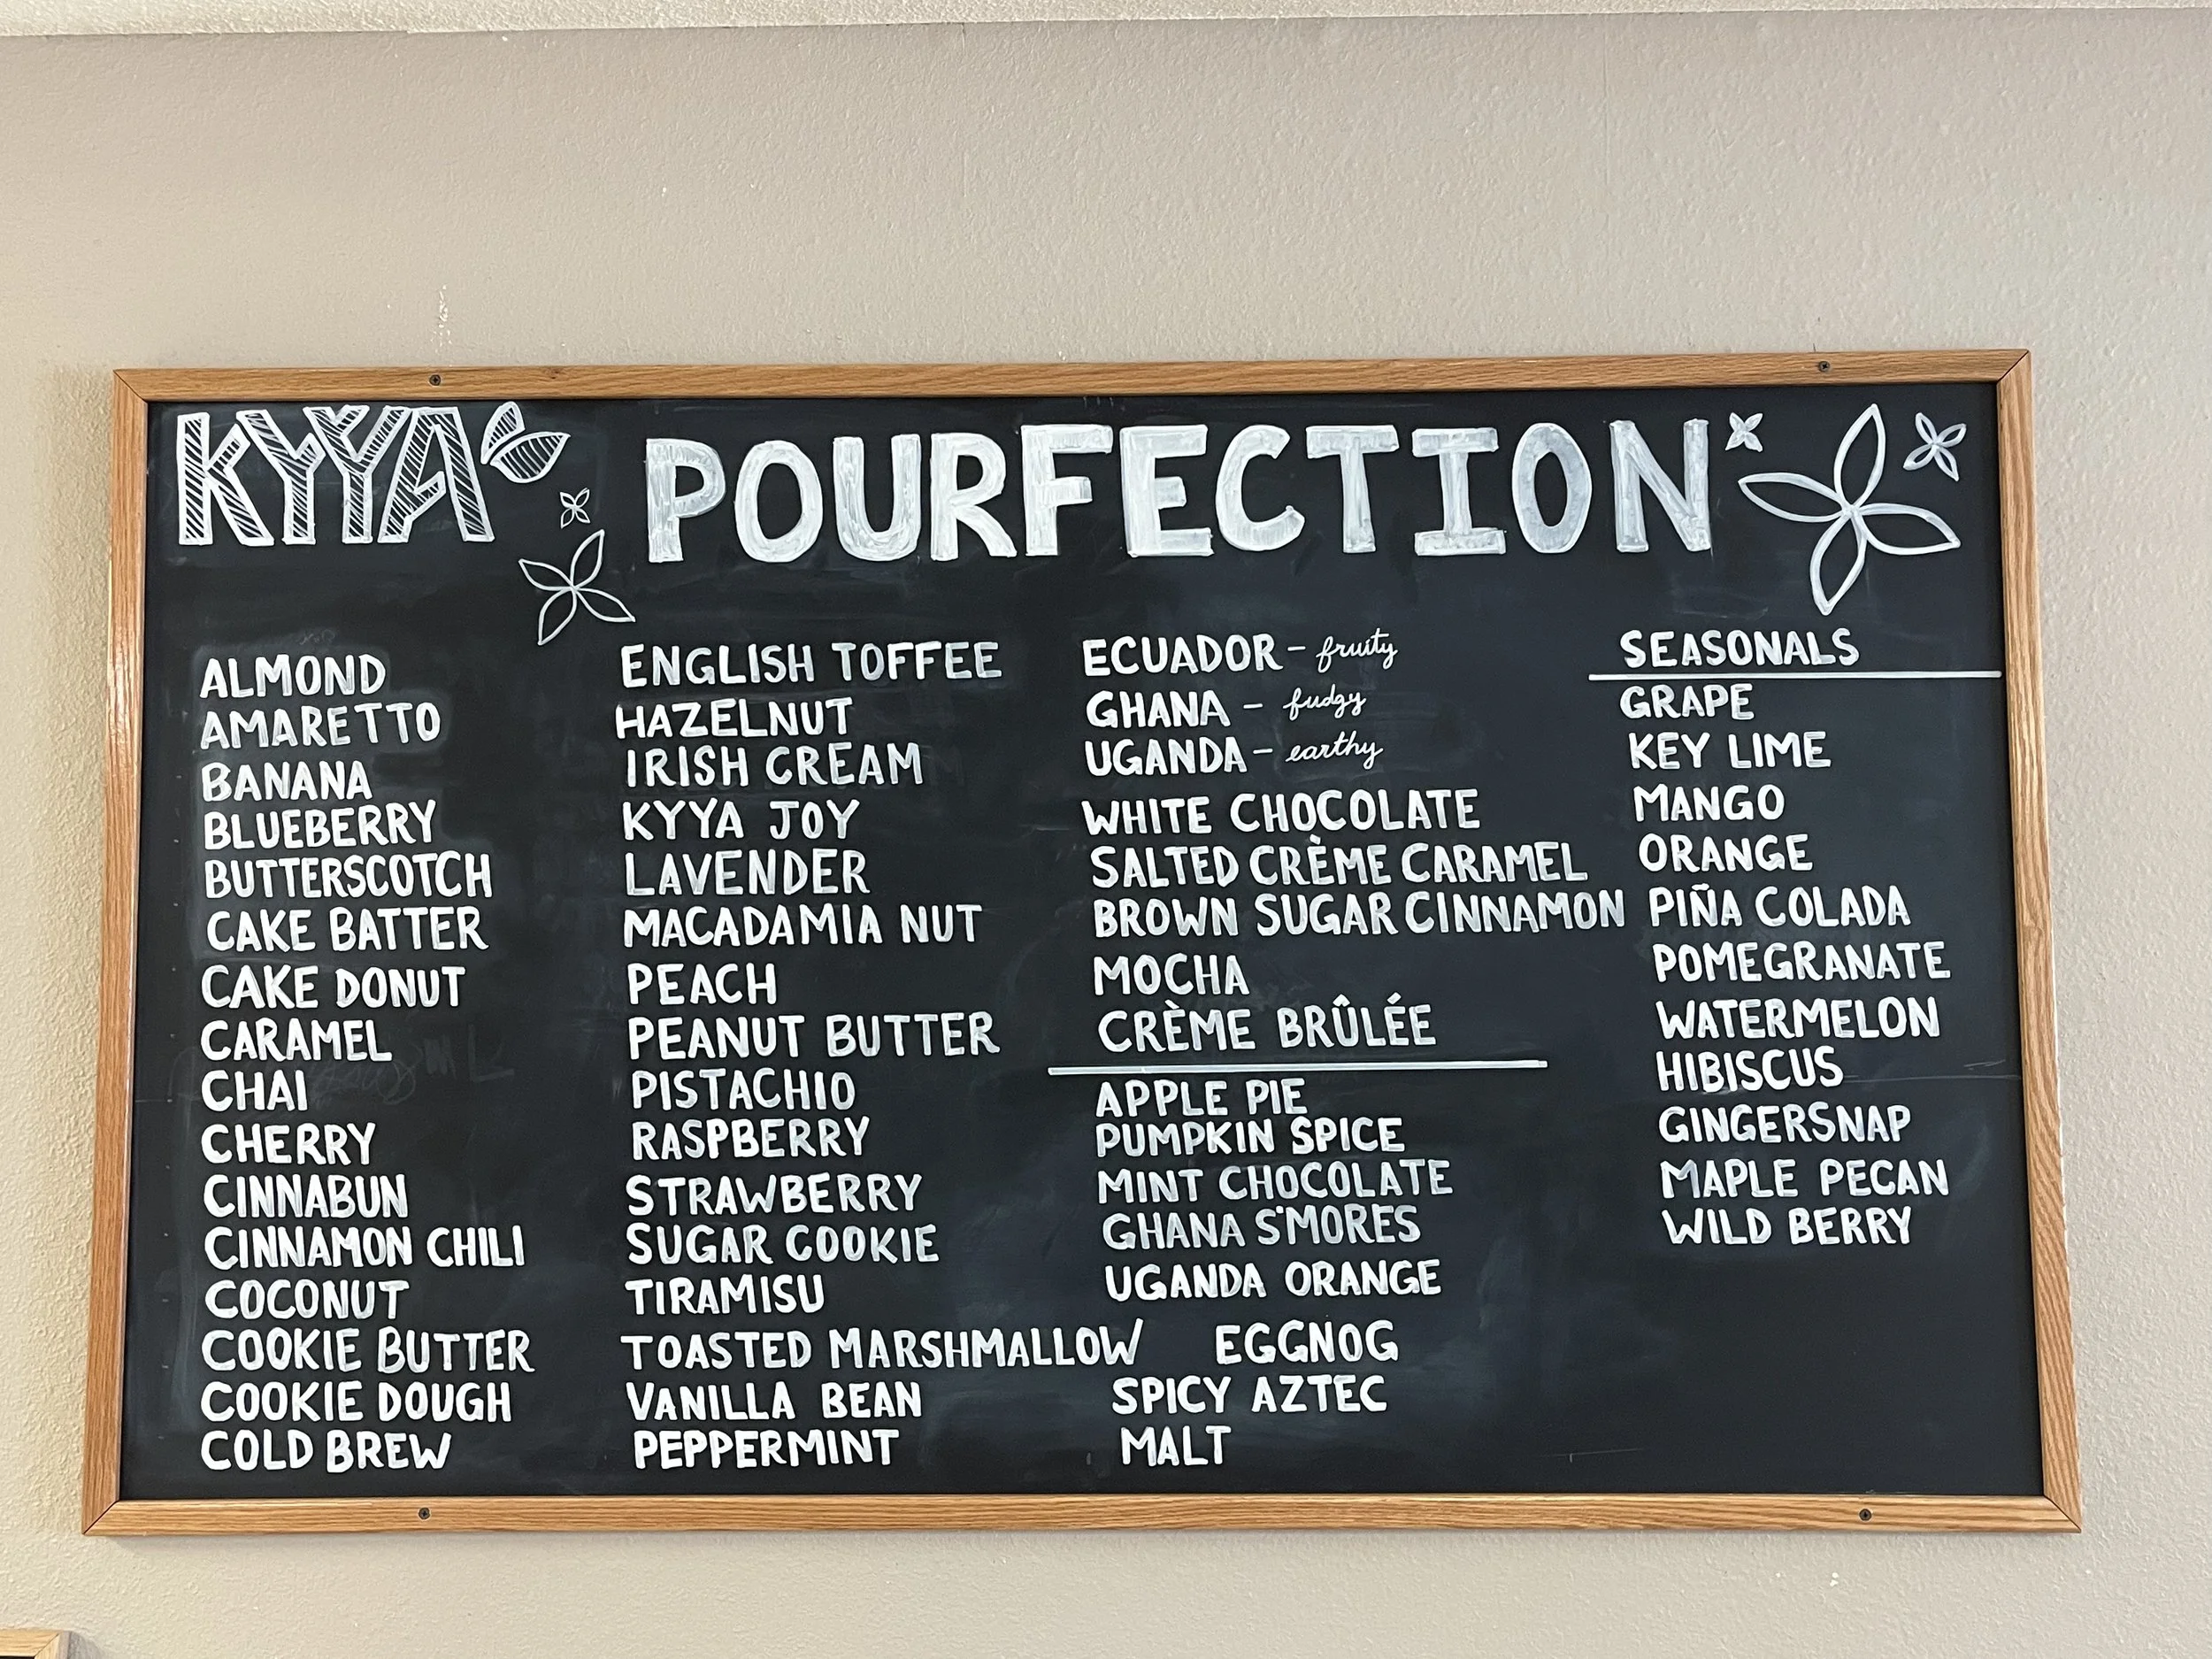 KYYA
POURFECTION
ALMOND
AMARETTO
BANANA
BLUEBERRY
BUTTERSCOTCH
CAKE BATTER
CAKE DONUT
CARAMEL
CHAI
CHERRY
CINNABUN
CINNAMON CHILI
COCONUT
COOKIE BUTTER
COOKIE DOUGH
COLD BREW
ENGLISH TOFFEE
HAZELNUT
IRISH CREAM
KYYA JOY
LAVENDER
MACADAMIA NUT
PEACH
PEANUT BUTTER
PISTACHIO
RASPBERRY
STRAWBERRY
SUGAR COOKIE
TIRAMISU
TOASTED MARSHMALLOW
VANILLA BEAN
PEPPERMINT
ECUADOR - fruity
GHANA - fudgy
UGANDA - earthy
WHITE CHOCOLATE
SALTED CRÈME CARAMEL
BROWN SUGAR CINNAMON
MOCHA
CRÈME BRÛLÉE
APPLE PIE
PUMPKIN SPICE
MINT CHOCOLATE
GHANA S'MORES
UGANDA ORANGE
EGGNOG
SPICY AZTEC
MALT
SEASONALS
GRAPE
KEY LIME
MANGO
ORANGE
PIÑA COLADA
POMEGRANATE
WATERMELON
HIBISCUS
GINGERSNAP
MAPLE PECAN
WILD BERRY